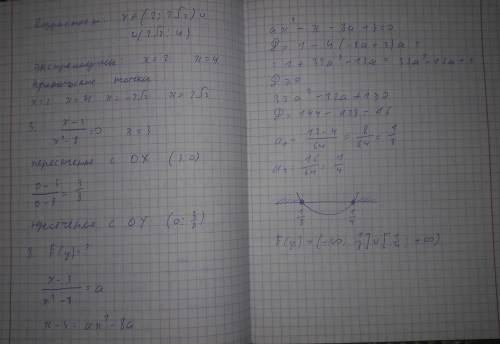 Возрастает x ∈ (2; 2√2) ∪
∪ (2√2; 4)
экстремумы x = 2 x = 4
критические точки
x = 2 x = 4 x = -2√2 x = 2√2
(x-3)/(x²-8) = 0 x = 3
пересечение с OX (3; 0)
(0-3)/(0-8) = 3/8
пересечение с OY (0; 3/8)
8. E(y) = ?
(x-3)/(x²-8) = a
x - 3 = ax² - 8a
ax² - x - 8a + 3 = 0
D = 1 - 4(-8a + 3)a =
1 + 32a² - 12a = 32a² - 12a + 1
D ≥ 0
32a² - 12a + 1 ≥ 0
D = 144 - 128 = 16
a₁ = (12-4)/64 = 8/64 = 1/8
a₂ = 16/64 = 1/4
1/8 1/4
E(y) = (-∞; 1/8] ∪ [1/4; +∞)